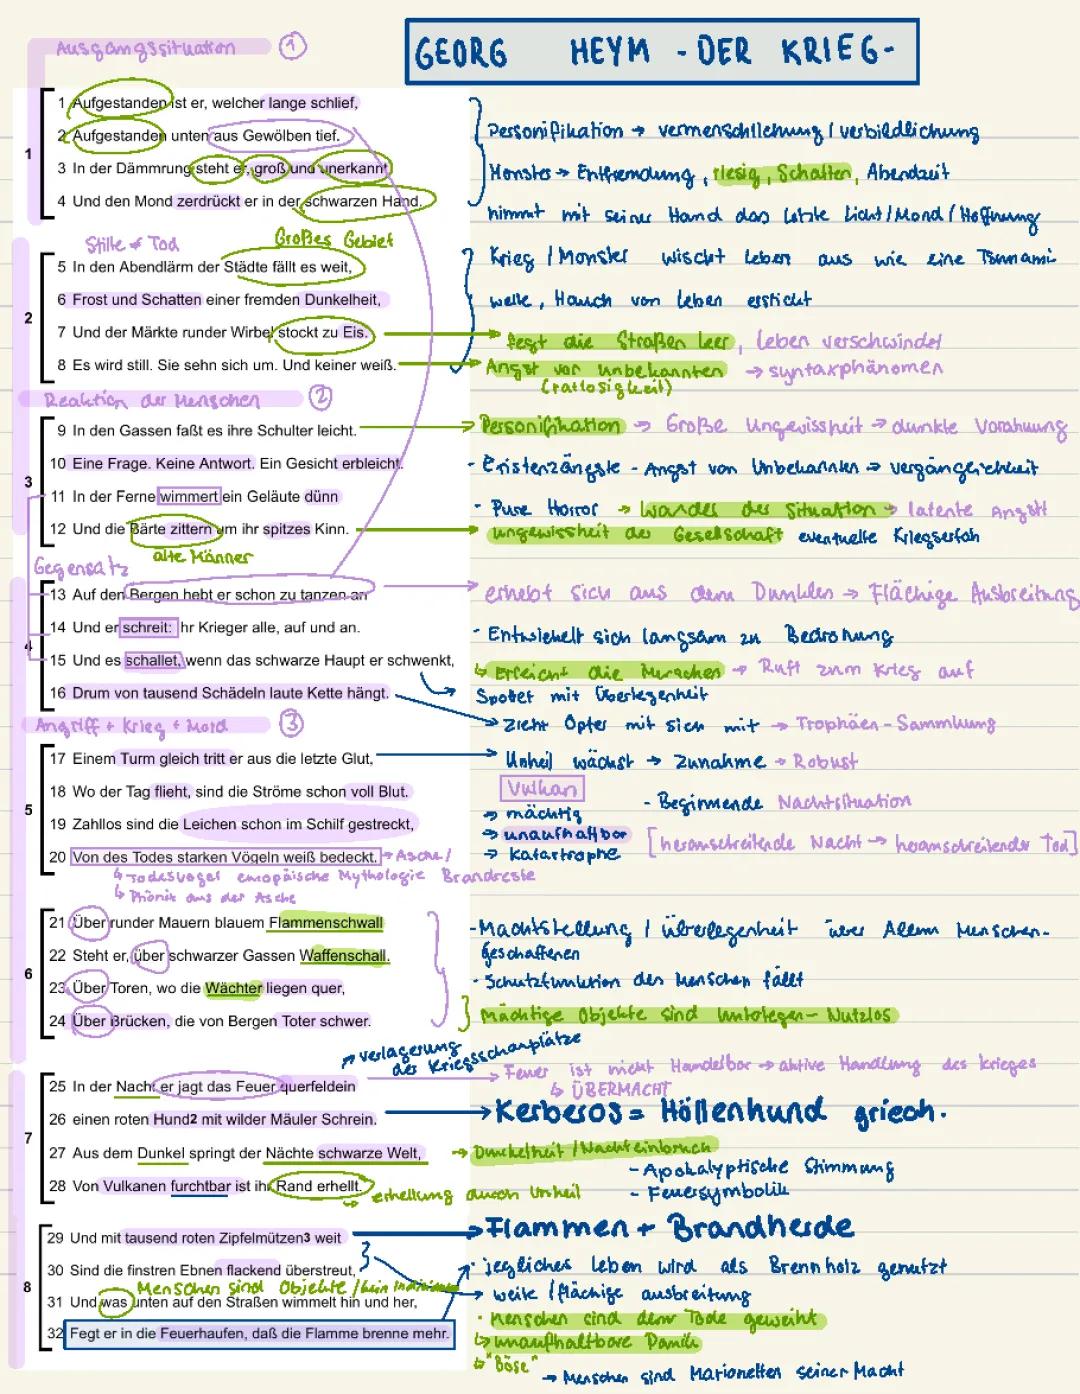 Ausgangssituation ①
GEORG HEYM - DER KRIEG -
1
1 Aufgestanden ist er, welcher lange schlief,
2 Aufgestanden unten aus Gewölben tief.
3 In der Dämmrung steht er, groß und unerkannt,
4 Und den Mond zerdrückt er in der schwarzen Hand.
Personifikation → vermenschlichung / verbildlichung
Monster → Entfremdung, riesig, Schatten, Abendzeit
nimmt mit seiner Hand das letzte Licht / Mond / Hoffnung
Stille + Tod
Großes Gebiet
2
5 In den Abendlärm der Städte fällt es weit,
6 Frost und Schatten einer fremden Dunkelheit,
7 Und der Märkte runder Wirbel stockt zu Eis.
8 Es wird still. Sie sehn sich um. Und keiner weiß.
Krieg / Monster wischt Leben aus wie eine Tsunami
welle, Hauch von Leben erstickt
→ fegt die Straßen leer, Leben verschwindet
→ Angst vor unbekannten → syntaxphänomen
(ratlosigkeit)
Reaktion der Menschen ②
3
9 In den Gassen faßt es ihre Schulter leicht.
10 Eine Frage. Keine Antwort. Ein Gesicht erbleicht.
11 In der Ferne wimmert ein Geläute dünn
12 Und die Bärte zittern um ihr spitzes Kinn.
alte Männer
→ Personifikation → Große Ungewissheit → dunkle Vorahnung
- Existenzängste - Angst von Unbekannten → vergänglichkeit
- Pure Horror → Wandel der Situation → latente Angst
→ ungewissheit der Gesellschaft eventuelle
Gegensatz
4
13 Auf den Bergen hebt er schon zu tanzen an
14 Und er schreit: Ihr Krieger alle, auf und an.
15 Und es schallet, wenn das schwarze Haupt er schwenkt,
16 Drum von tausend Schädeln laute Kette hängt.
→ erhebt sich aus dem Dunklen → Flächige Ausbreitung
- Entwickelt sich langsam zu Bedrohung
↳ Erreicht die Menschen → Ruft zum Krieg auf
Spottet mit Überlegenheit
→ zieht Opfer mit sich mit → Trophäen-Sammlung
Angriff + Krieg + Mord ③
5
17 Einem Turm gleich tritt er aus die letzte Glut,
18 Wo der Tag flieht, sind die Ströme schon voll Blut.
19 Zahllos sind die Leichen schon im Schilf gestreckt,
20 Von des Todes starken Vögeln weiß bedeckt. → Asche /
↳ Todesvogel europäische Mythologie Brandreste
↳ Phönix aus der Asche
→ Unheil wächst → Zunahme → Robust
Vulkan
→ mächtig
→ unaufhaltbar
→ Katastrophe
- Beginnende Nachtsituation
[heranschreitende Nacht → heranschreitender Tod]
6
21 Über runder Mauern blauem Flammenschwall
22 Steht er, über schwarzer Gassen Waffenschall.
23 Über Toren, wo die Wächter liegen quer,
24 Über Brücken, die von Bergen Toter schwer.
- Machtstellung / überlegenheit über Allem Menschen-
geschaffenen
- Schutzfunktion des Menschen fällt
Mächtige Objekte sind unterlegen - Nutzlos
→ verlagerung
der Kriegsschauplätze
7
25 In der Nacht er jagt das Feuer querfeldein
26 einen roten Hund2 mit wilder Mäuler Schrein.
27 Aus dem Dunkel springt der Nächte schwarze Welt,
28 Von Vulkanen furchtbar ist ihr Rand erhellt.
→ Feuer ist nicht Handelbar → aktive Handlung des krieges
↳ ÜBERMACHT
→ Kerberos = Höllenhund griech.
→ Dunkelheit / Nachteinbruch
- Apokalyptische Stimmung
- Feuersymbolik
→ erhellung durch Unheil
8
29 Und mit tausend roten Zipfelmützen3 weit
30 Sind die finstren Ebnen flackend überstreut,
Menschen sind Objekte / kein
31 Und was unten auf den Straßen wimmelt hin und her,
32 Fegt er in die Feuerhaufen, daß die Flamme brenne mehr.
→ Flammen + Brandherde
- jegliches Leben wird als Brennholz genutzt
→ weite / flächige ausbreitung
- Menschen sind dem Tode geweiht
↳ unaufhaltbare Panik
↳ "Böse"
→ Menschen sind Marionetten seiner Macht